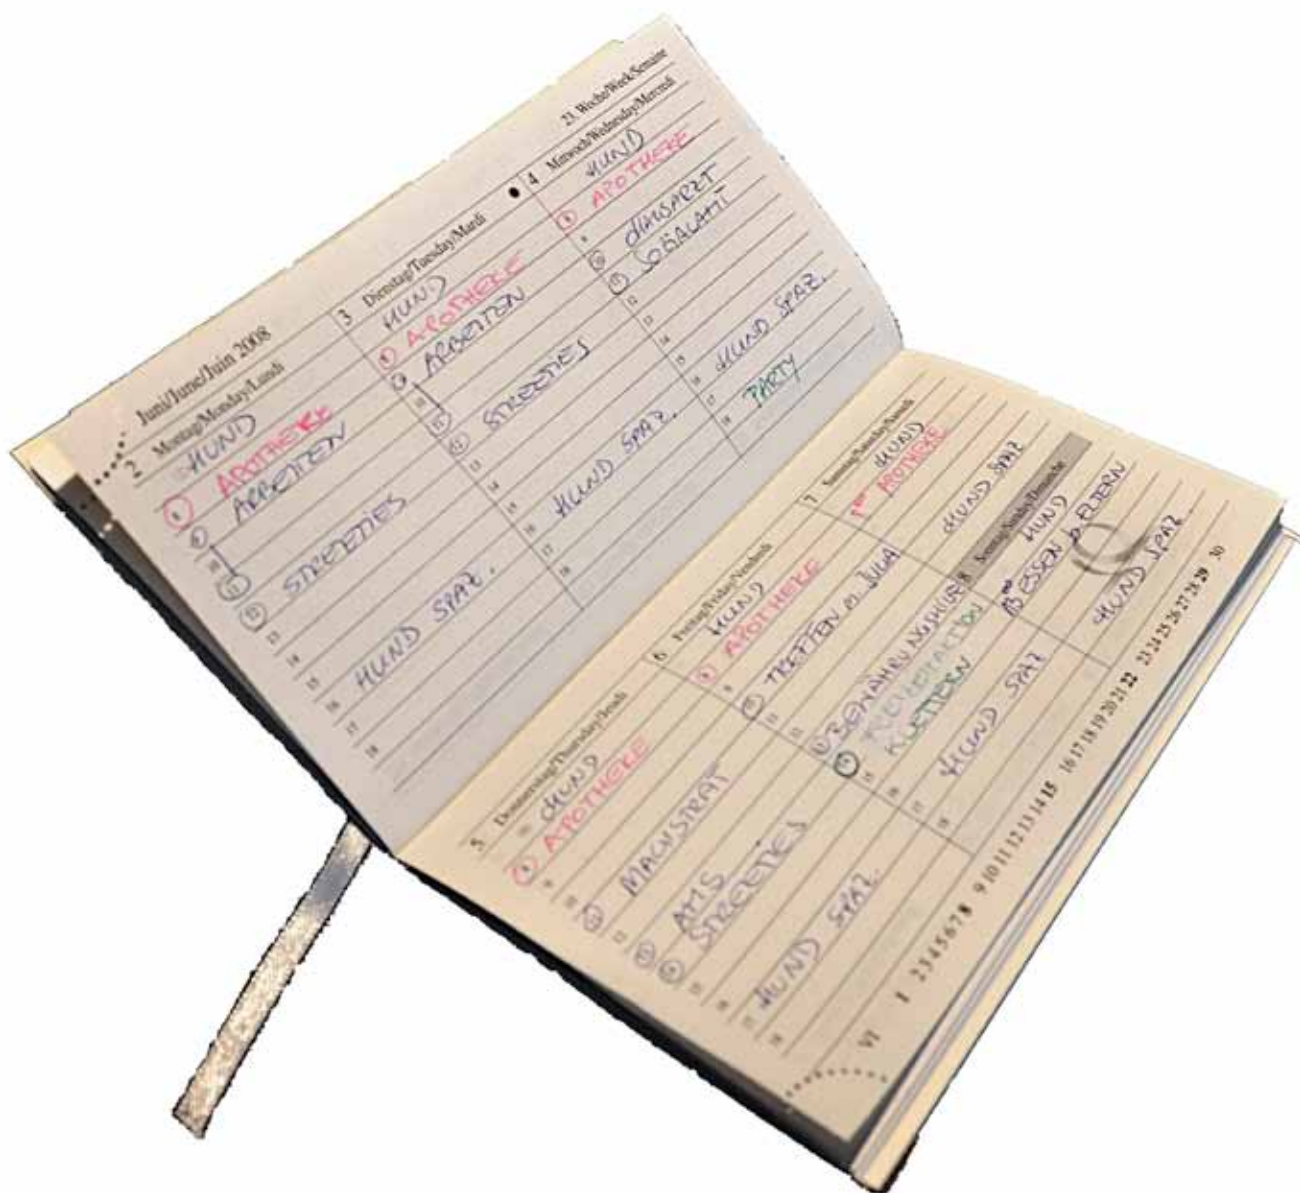 Juni/June/Juin 2008
2 Montag/Monday/Lundi
HUND
8 APOTHEKE
9 ARBEITEN
10
11
12 STREETIES
13
14
15
16 HUND SPAZ.
17
18
3 Dienstag/Tuesday/Mardi
HUND
8 APOTHEKE
9 ARBEITEN
10
11
12 STREETIES
13
14
15
16 HUND SPAZ.
17
18
23. Woche/Week/Semaine
4 Mittwoch/Wednesday/Mercredi
HUND
8 APOTHEKE
9
10 HAUSARZT
11 SOZIALAMT
12
13
14
15
16 HUND SPAZ.
17
18 PARTY
5 Donnerstag/Thursday/Jeudi
HUND
8 APOTHEKE
9
10
11 MAGISTRAT
12
13 AMS
14 STREETIES
15
16
17 HUND SPAZ.
18
6 Freitag/Friday/Vendredi
HUND
8 APOTHEKE
9
10 TREFFEN m. JULIA
11
12
13 BEWÄHRUNGSHILFE
14
KLETTERN
15
16
17 HUND SPAZ
18
7 Samstag/Saturday/Samedi
HUND
APOTHEKE
HUND SPAZ
8 Sonntag/Sunday/Dimanche
HUND
ESSEN b. ELTERN
HUND SPAZ
VI 1 2 3 4 5 6 7 8 9 10 11 12 13 14 15 16 17 18 19 20 21 22 23 24 25 26 27 28 29 30